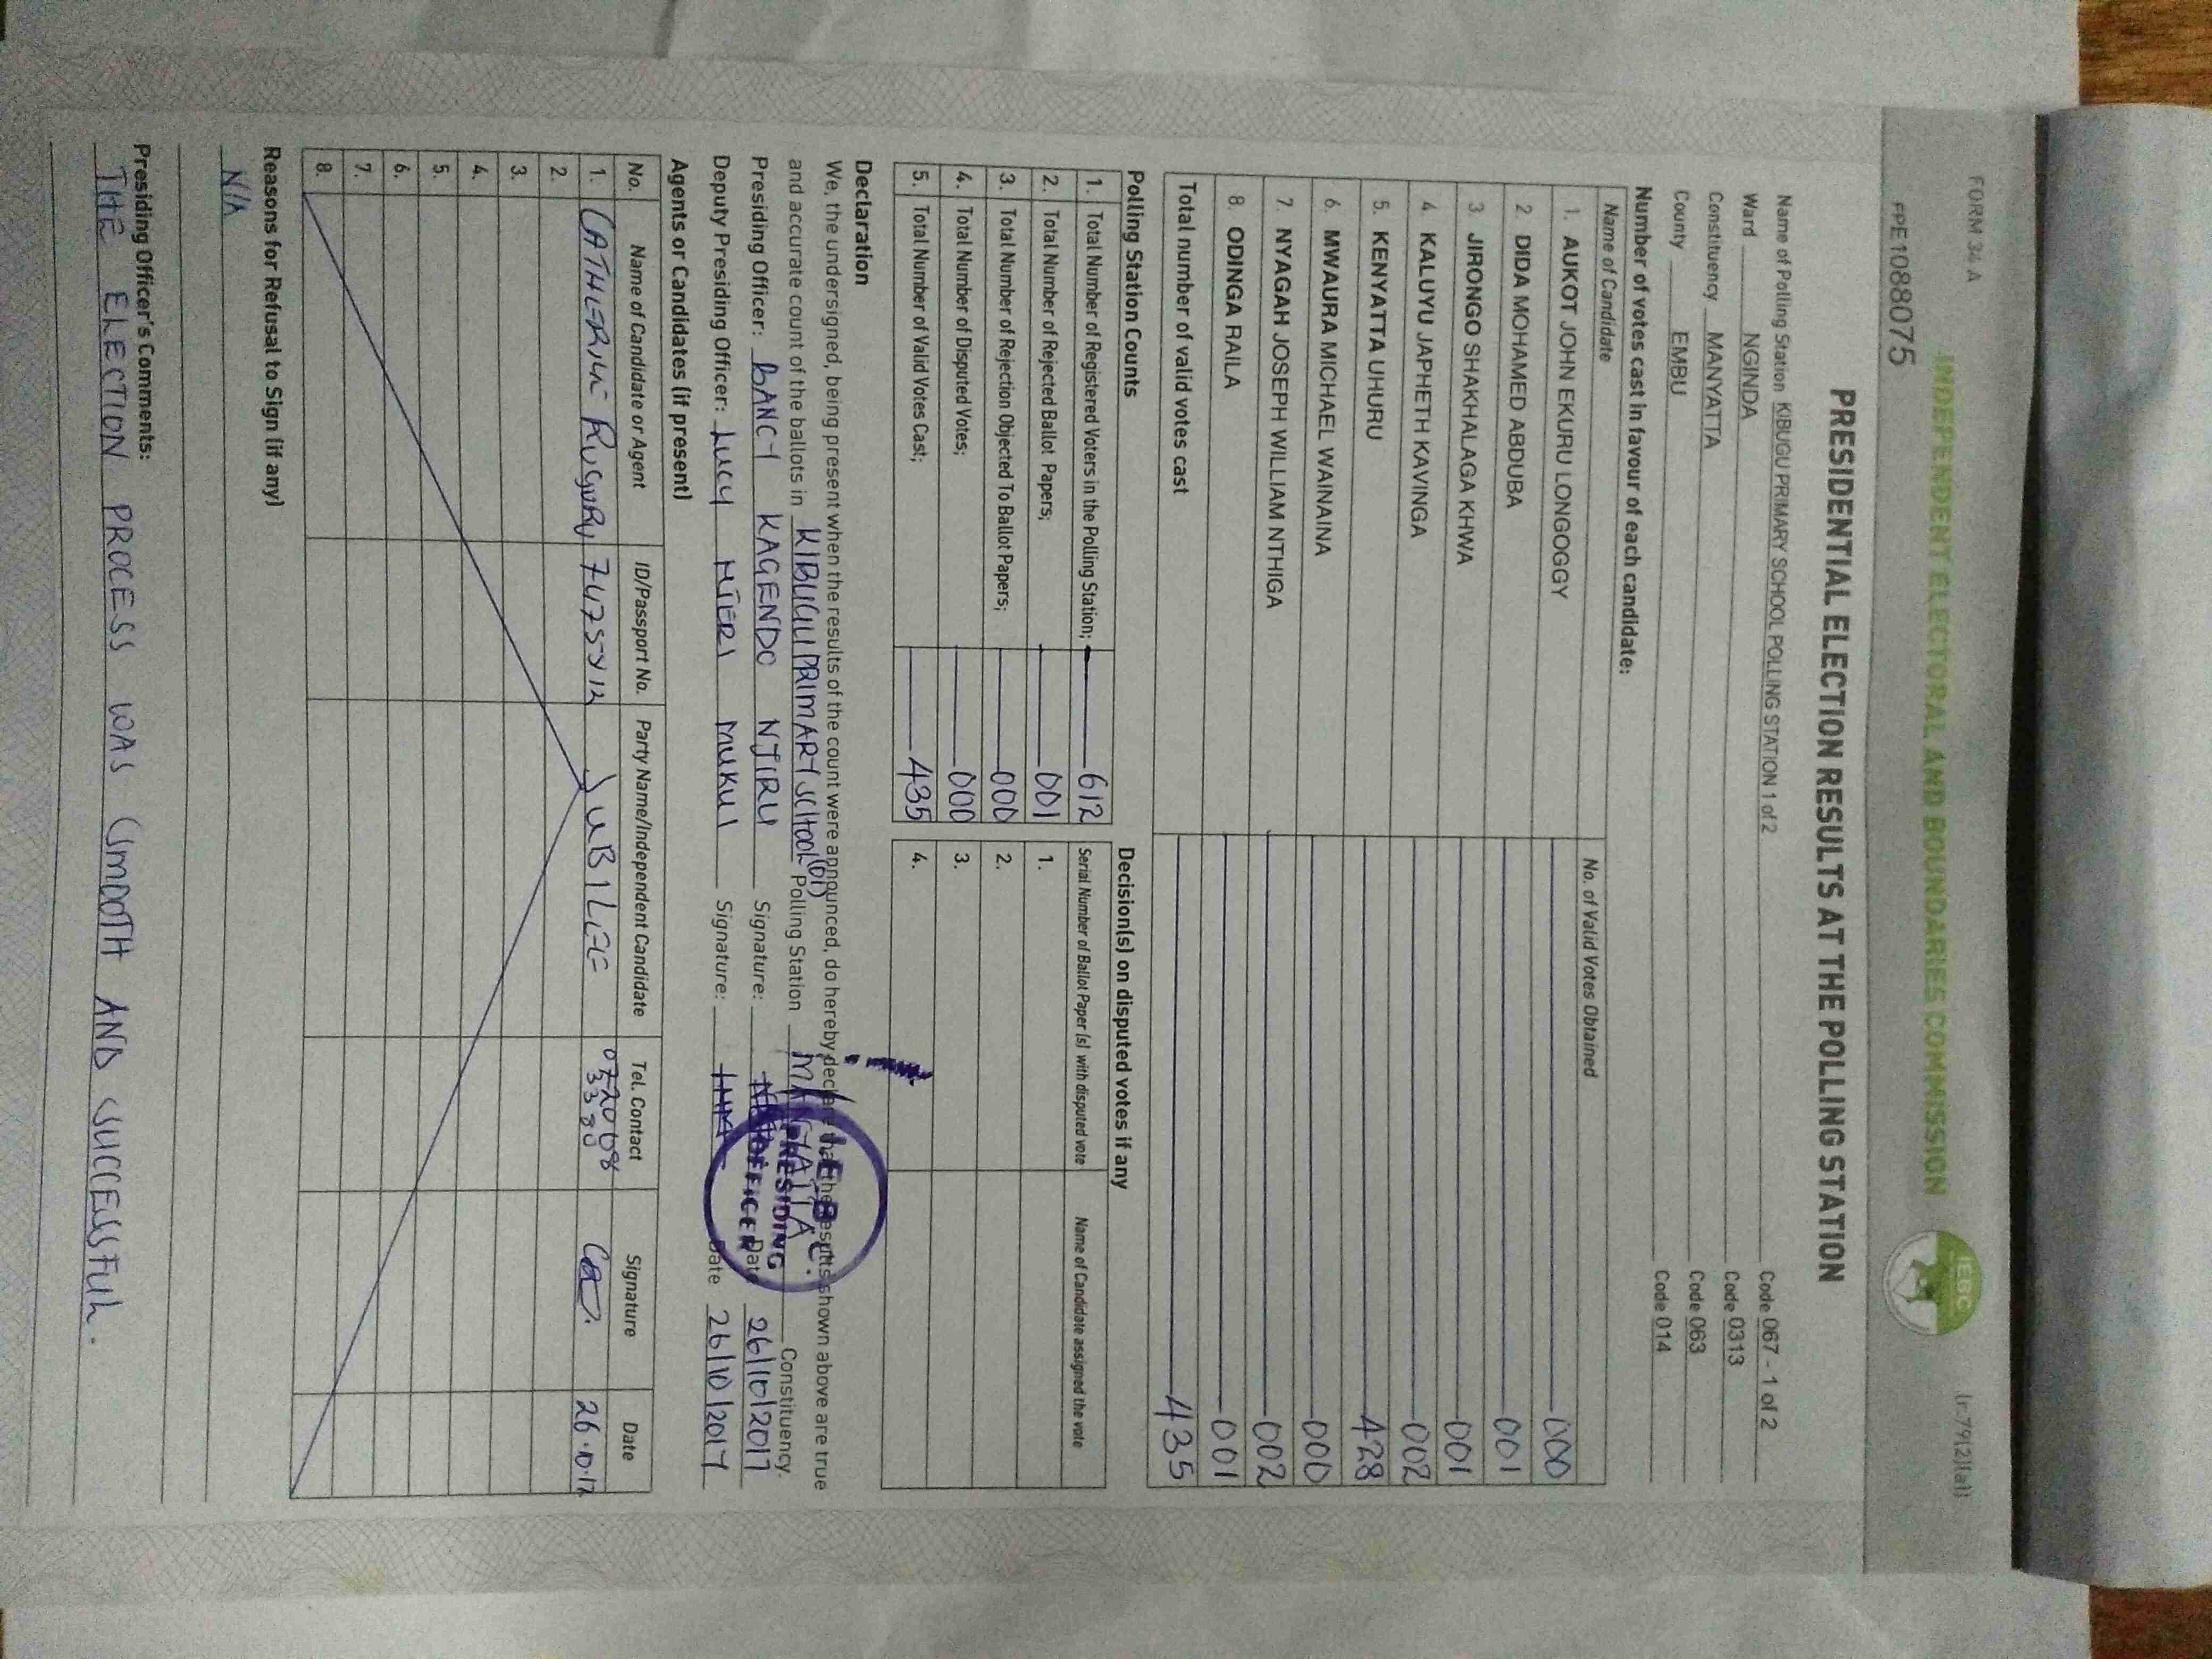 FORM 34 A (r.79(2)(a))
INDEPENDENT ELECTORAL AND BOUNDARIES COMMISSION
IEBC
FPE1088075
PRESIDENTIAL ELECTION RESULTS AT THE POLLING STATION
Name of Polling Station KIBUGU PRIMARY SCHOOL POLLING STATION 1 of 2 Code 067 - 1 of 2
Ward NGINDA Code 0313
Constituency MANYATTA Code 063
County EMBU Code 014
Number of votes cast in favour of each candidate:
Name of Candidate No. of Valid Votes Obtained
1. AUKOT JOHN EKURU LONGOGGY 000
2 DIDA MOHAMED ABDUBA 001
3 JIRONGO SHAKHALAGA KHWA 001
4 KALUYU JAPHETH KAVINGA 002
5. KENYATTA UHURU 428
6. MWAURA MICHAEL WAINAINA 000
7. NYAGAH JOSEPH WILLIAM NTHIGA 002
8. ODINGA RAILA 001
Total number of valid votes cast 435
Polling Station Counts Decision(s) on disputed votes if any
1. Total Number of Registered Voters in the Polling Station; 612 Serial Number of Ballot Paper (s) with disputed vote Name of Candidate assigned the vote
2. Total Number of Rejected Ballot Papers; 001 1.
3. Total Number of Rejection Objected To Ballot Papers; 000 2.
4. Total Number of Disputed Votes; 000 3.
5. Total Number of Valid Votes Cast; 435 4.
Declaration
We, the undersigned, being present when the results of the count were announced, do hereby declare that the results shown above are true
and accurate count of the ballots in KIBUGU PRIMARY SCHOOL (01) Polling Station MANYATTA Constituency.
Presiding Officer: KAGENDO NJIRU Signature: Date 26/10/2017
Deputy Presiding Officer: LUCY NJERI MUKUI Signature: Date 26/10/2017
I.E.B.C.
PRESIDING
OFFICER
Agents or Candidates (if present)
No. Name of Candidate or Agent ID/Passport No. Party Name/Independent Candidate Tel. Contact Signature Date
1. CATHERINE JUBILEE 26.10.17
2.
3.
4.
5.
6.
7.
8.
Reasons for Refusal to Sign (if any)
N/A
Presiding Officer's Comments:
THE ELECTION PROCESS WAS SMOOTH AND SUCCESSFUL.